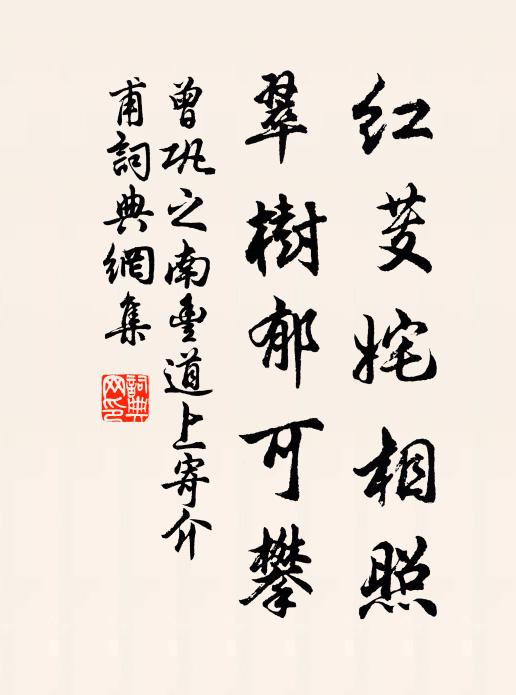 红芰姹相照
翠樹郁可攀
曾巩之南豊道上寄介
甫詞典網集
詞典
网印